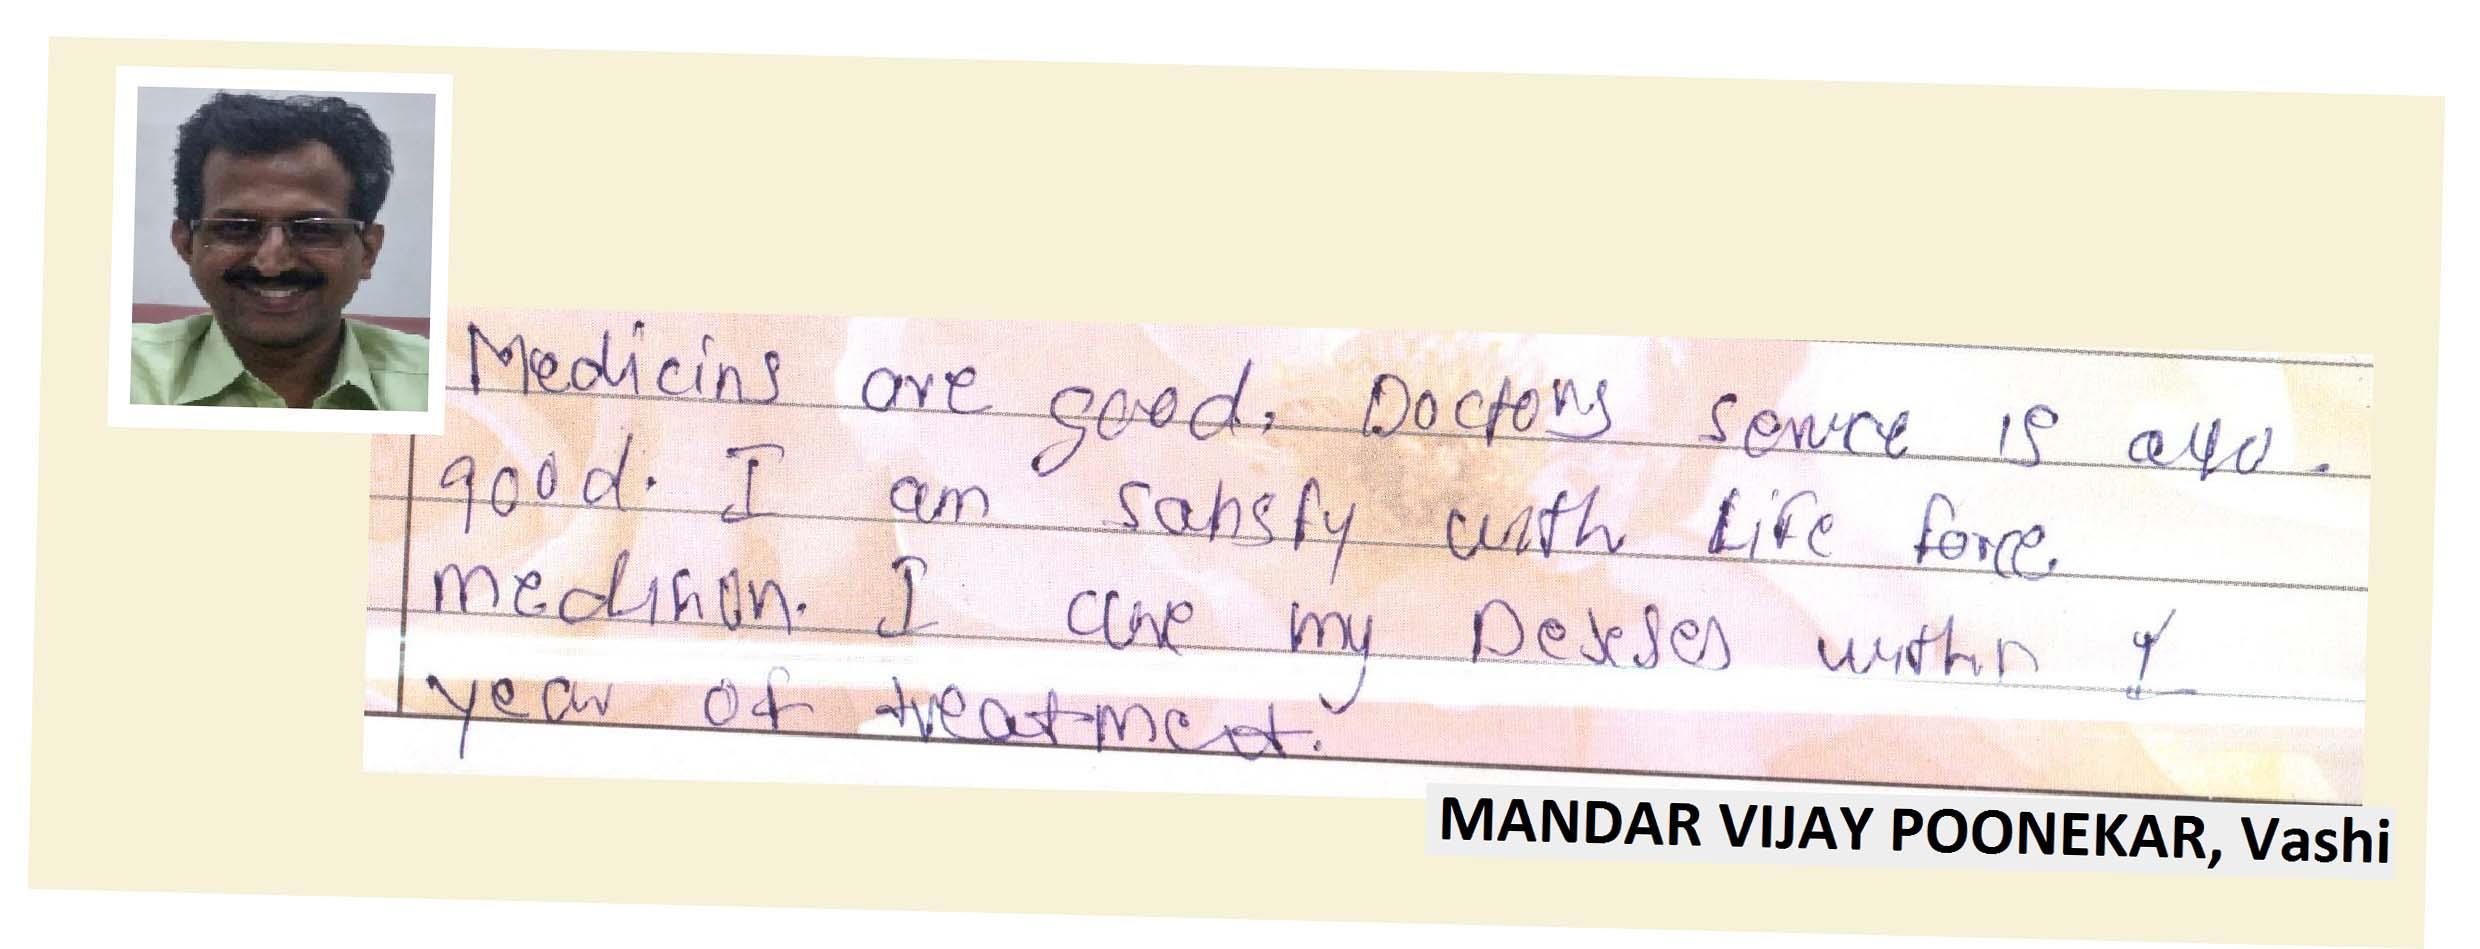 Medicins are good. Doctors service is also.
good. I am satisfy with Life force.
medicion. I cure my Deseses within 1
year of treatment.
MANDAR VIJAY POONEKAR, Vashi